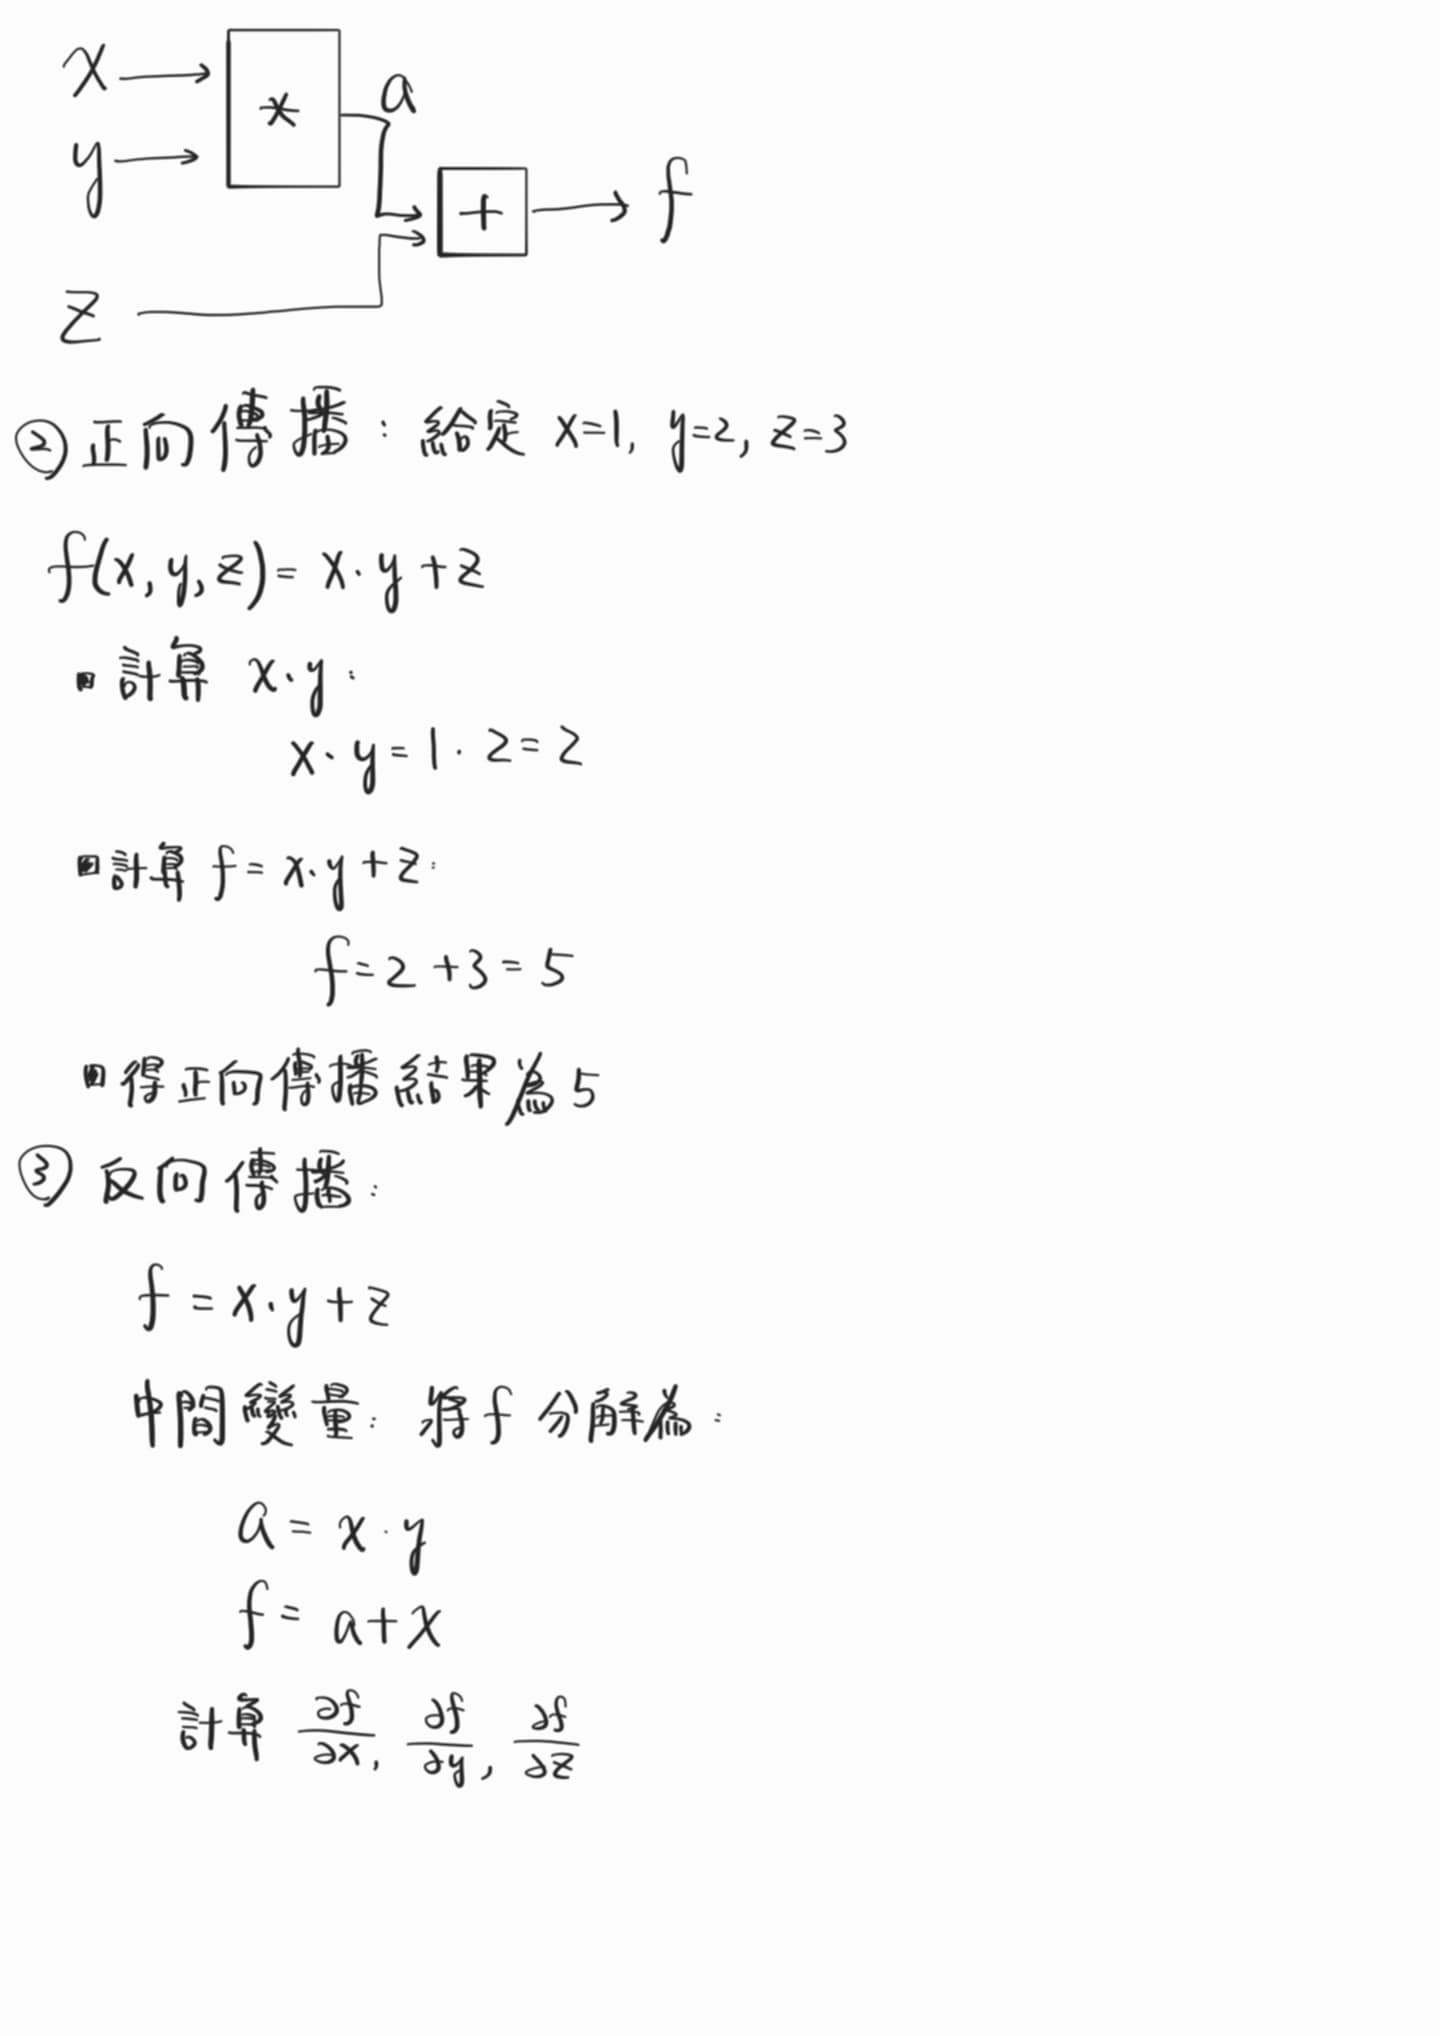 x
y
*
a
+
f
z
② 正向傳播：給定 x=1, y=2, z=3
f(x, y, z) = x·y+z
計算 x·y：
x·y = 1·2 = 2
計算 f = x·y+z：
f = 2+3 = 5
得正向傳播結果為5
③ 反向傳播：
f = x·y+z
中間變量：將f分解為：
a = x·y
f = a+x
計算 ∂f/∂x, ∂f/∂y, ∂f/∂z